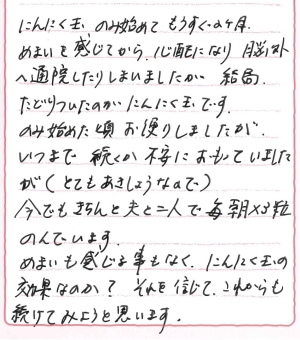 にんにく玉 のみ始めて もうすぐ2ヶ月.
めまいを感じてから、心配になり 脳外
へ通院したりしまいましたが 結局.
たどりついたのが にんにく玉です.
のみ始めた頃 お便りしましたが.
いつまで 続くか 不安に おもっていました
が(とてもあきしょうなので)
今でもきちんと夫と二人で毎朝×3粒
のんでいます.
めまいも感じる事もなく、にんにく玉の
効果なのか? それを信じて、これからも
続けてみようと思います.